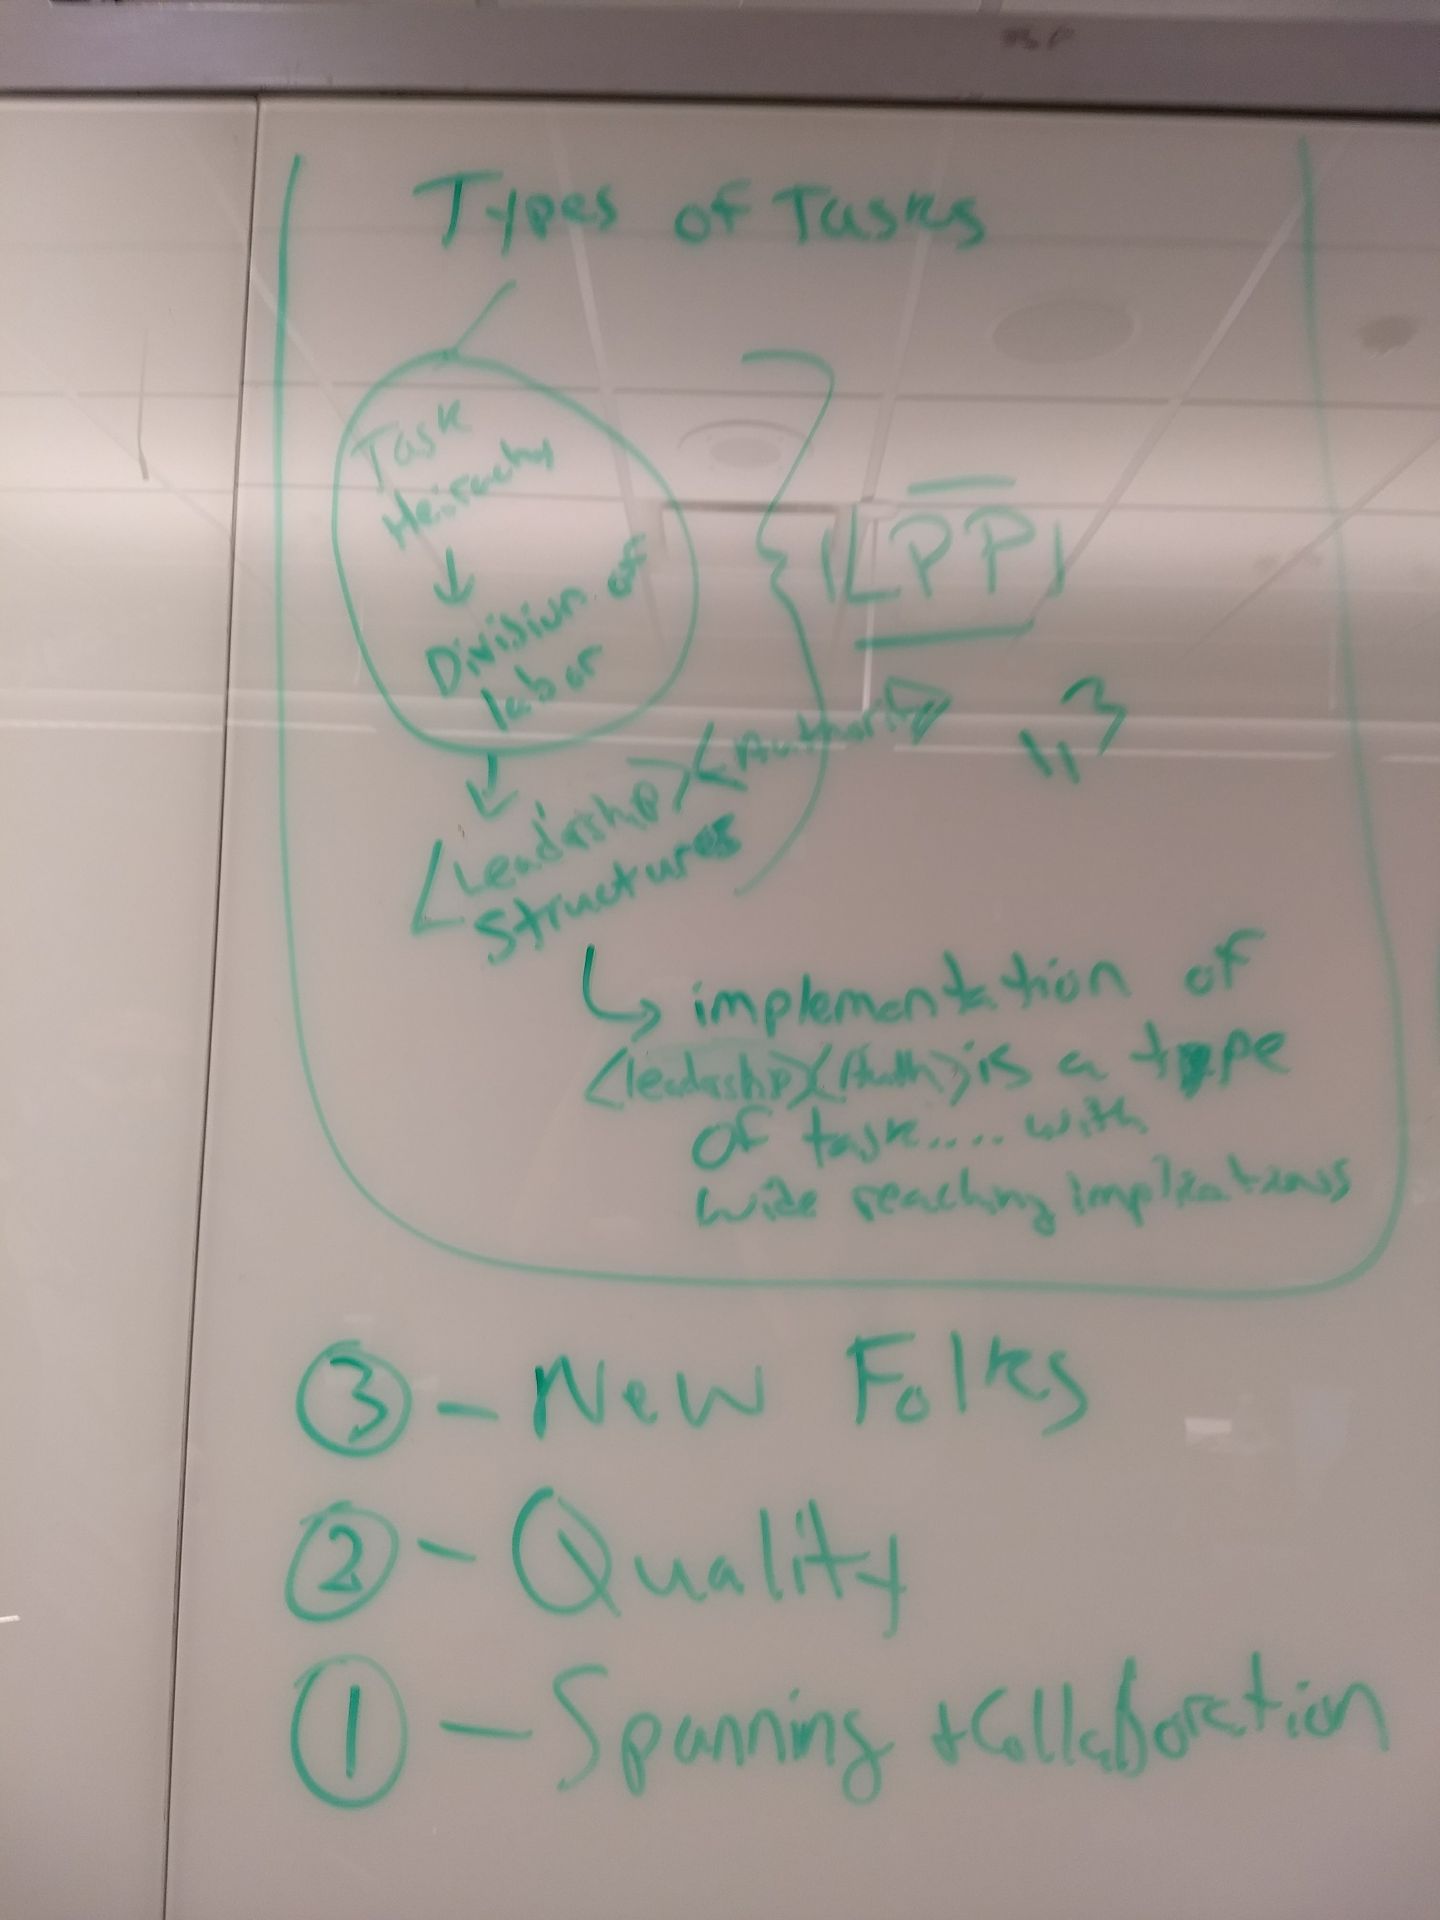 Types of Tasks
Task
Heirachy
↓
Division of
labor
LPP
↓
<Leadership><Authority>
Structures
↳ implementation of
<leadership><Auth> is a type
of task.... with
wide reaching implications
③ - New Folks
② - Quality
① - Spanning + Collaboration